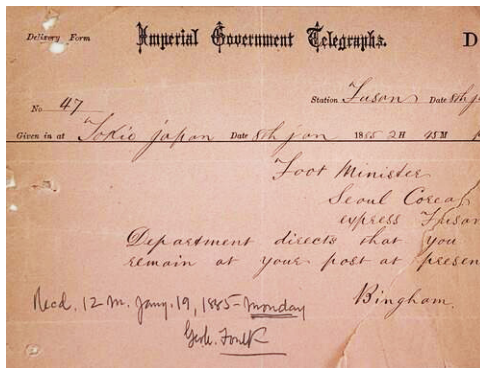 Delivery Form Imperial Government Telegraphs. D
No 47 Station Fusan Date 8th j
Given in at Tokio japan Date 8th jan 1885 2H 45M
Foot Minister
Seoul Corea
express Fusan
Department directs that you
remain at your post at presen
Bingham.
Recd. 12 M. Jany. 19, 1885 - monday
Geo. C. Foulk